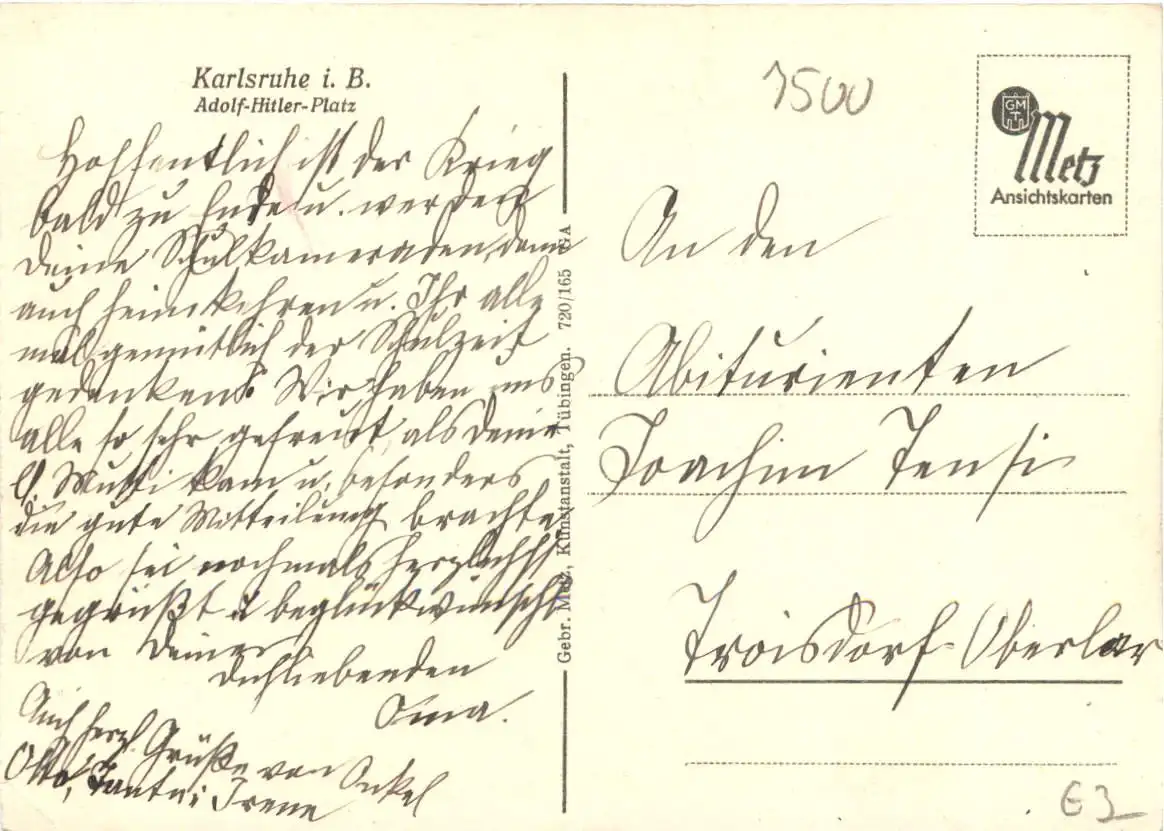 Karlsruhe i. B.
Adolf-Hitler-Platz
Hoffentlich ist der Krieg
bald zu Ende u. werden
Deine Schulkameraden dann
auch heimkehren u. Ihr alle
mal gemütlich der Schulzeit
gedenken. Wir haben uns
alle so sehr gefreut, als Deine
l. Mutti kam u. besonders
die gute Mitteilung brachte.
Also sei nochmals herzlichst
gegrüßt u beglückwünscht
von Deiner
Dichliebenden
Oma.
Auch herzl. Grüße von Onkel
Otto, Tante Irene
Gebr. Metz, Kunstanstalt, Tübingen. 720/165 GA
7500
GM
T
Metz
Ansichtskarten
An den
Abiturienten
Joachim Tensi
Troisdorf-Oberlar
G3